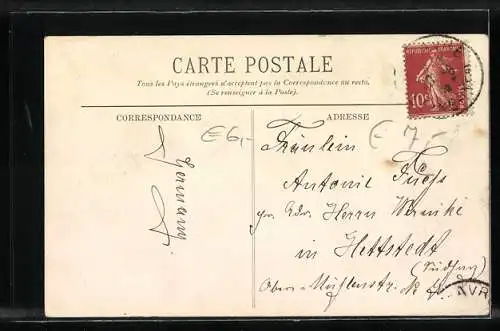 CARTE POSTALE
Tous les Pays étrangers n'acceptent pas la Correspondance au recto.
(Se renseigner à la Poste).
CORRESPONDANCE
ADRESSE
€6,-
€ 7-
10c
Hermann
Fräulein
Antonie Fuchs
per Adr. Herrn
in Hettstedt
(Südharz)
Ober-Mühlenstr.